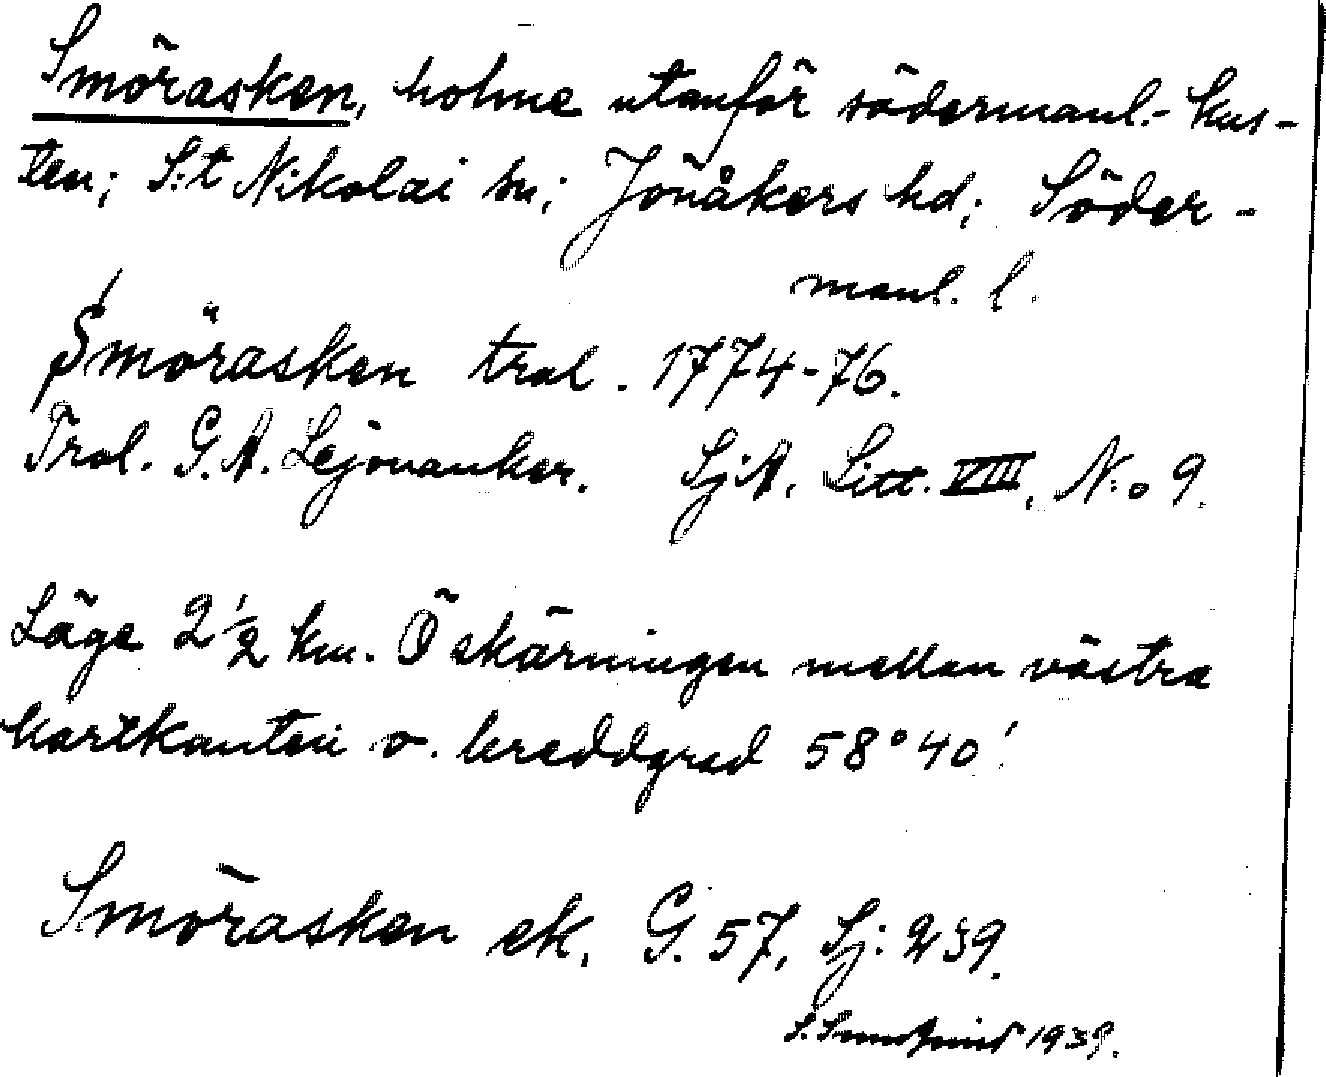 Smörasken, holme utanför södermanl.- kus-
ten; S:t Nikolai sn; Jönåkers hd; Söder-
manl. l.
Smörasken trol. 1774-76.
Trol. G.A. Lejonanker. Sj:A. Litt. VIII, N:o 9.
Läge 2 1/2 km. Ö skärningen mellan västra
kartkanten o. breddgrad 58° 40'
Smörasken ek. G. 57, Sj: 239.
1939.